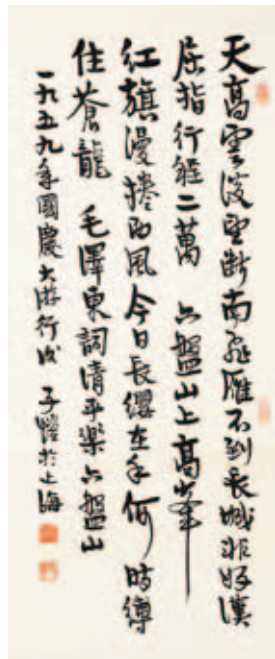 天高雲淡望斷南飛雁不到長城非好漢
屈指行程二萬 六盤山上高峯
紅旗漫捲西風今日長纓在手何時縛
住蒼龍 毛澤東詞清平樂六盤山
一九五九年國慶大游行 子愷於上海